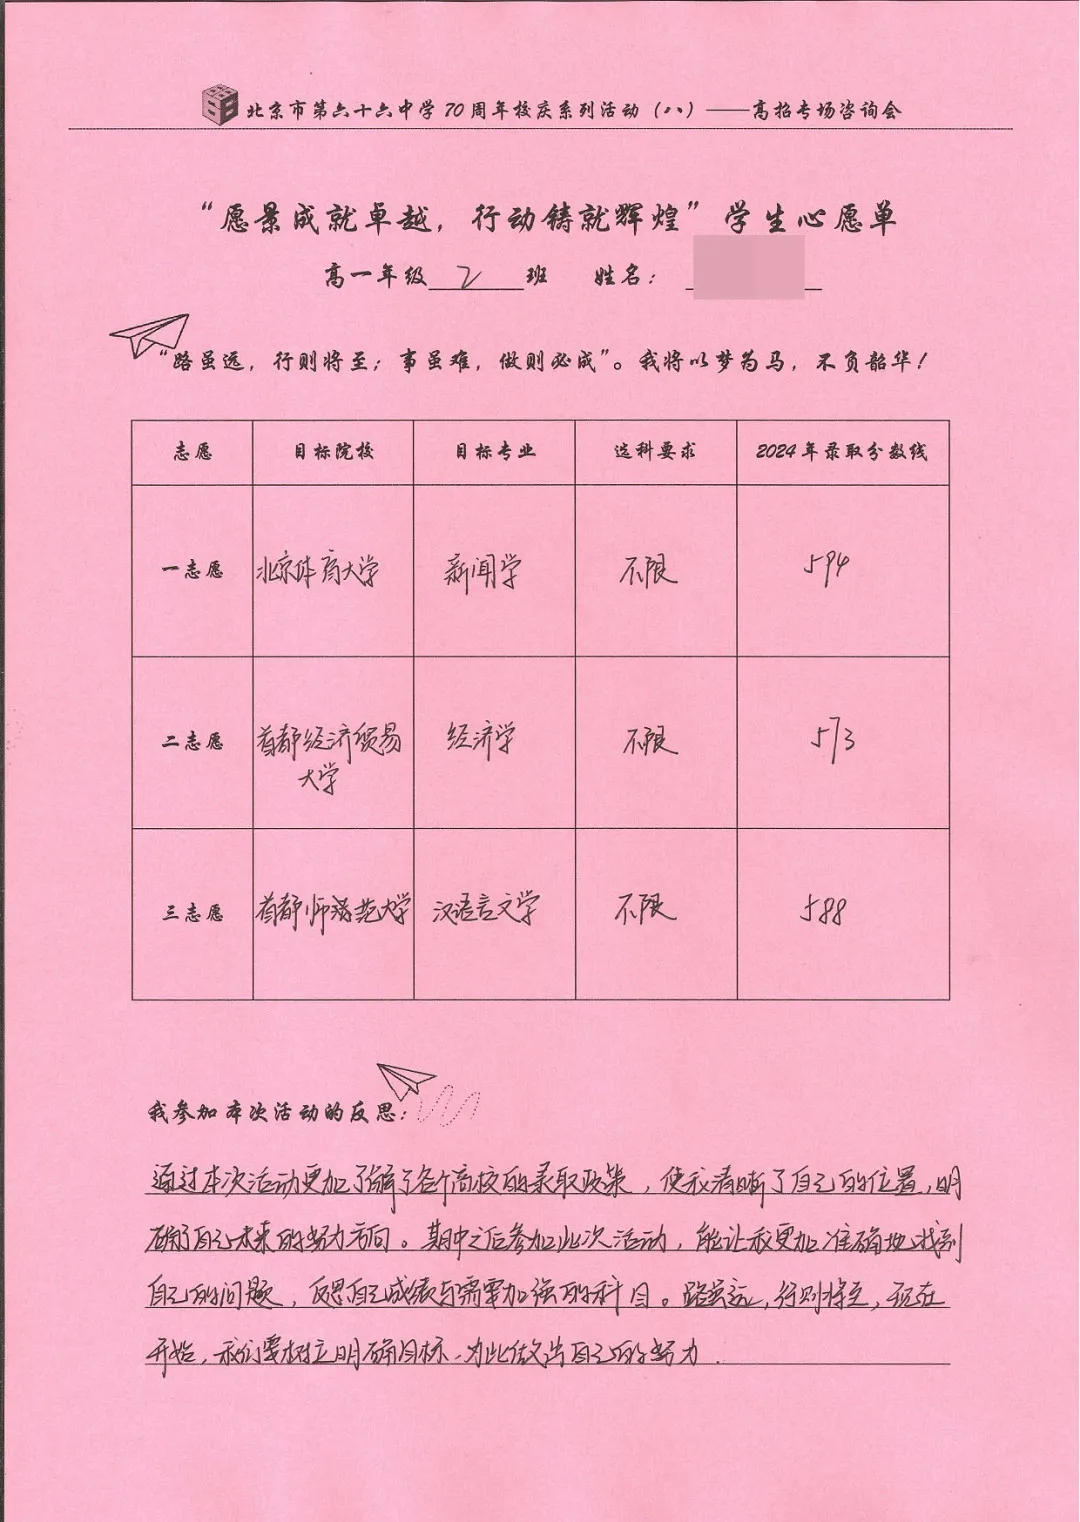 北京市第六十六中学70周年校庆系列活动（八）——高招专场咨询会
“愿景成就卓越，行动铸就辉煌”学生心愿单
高一年级 2 班 姓名：
“路虽远，行则将至；事虽难，做则必成”。我将以梦为马，不负韶华！
志愿 目标院校 目标专业 选科要求 2024年录取分数线
一志愿 北京体育大学 新闻学 不限 594
二志愿 首都经济贸易 经济学 不限 573
大学
三志愿 首都师范大学 汉语言文学 不限 588
我参加本次活动的反思：
通过本次活动更加了解了各个高校的录取政策，使我清晰了自己的位置，明
确了自己未来的努力方向。期中之后参加此次活动，能让我更加准确地找到
自己的问题，反思自己成绩与需要加强的科目。路虽远，行则将至，现在
开始，我们要树立明确目标、为此做出自己的努力．